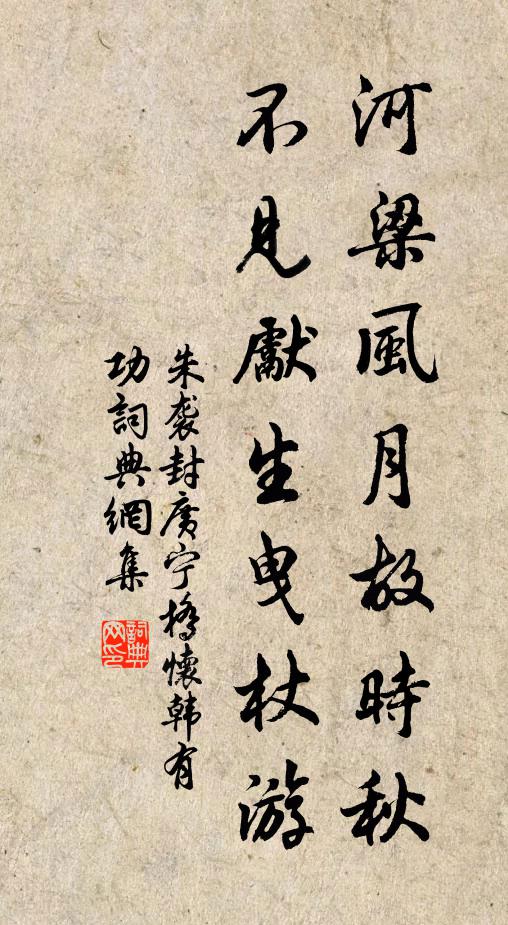 河梁風月故時秋
不見獻生曳杖游
朱袭封廣宁橋懷韩有
功詞典網集
詞典网印